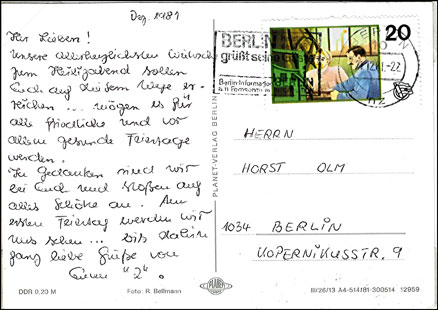 Dez. 1981
Ihr Lieben!
Unsere allerherzlichsten Wünsche
zum Heiligabend sollen
Euch auf diesem Wege er-
reichen... mögen es für
alle friedliche und vor
allem gesunde Feiertage
werden.
In Gedanken sind wir
bei Euch und stoßen auf
alles Schöne an. Am
ersten Feiertag werden wir
uns sehen... bis dahin
ganz liebe Grüße von
Euren "2".
DDR 0,20 M
Foto: R. Bellmann
PLANET-VERLAG BERLIN
PLANET
BERLIN
grüßt seine
Berlin-Information
am Fernsehturm
20
HERRN
HORST OLM
1034 BERLIN
KOPERNIKUSSTR. 9
III/26/13 A4-514/81-300514 12959